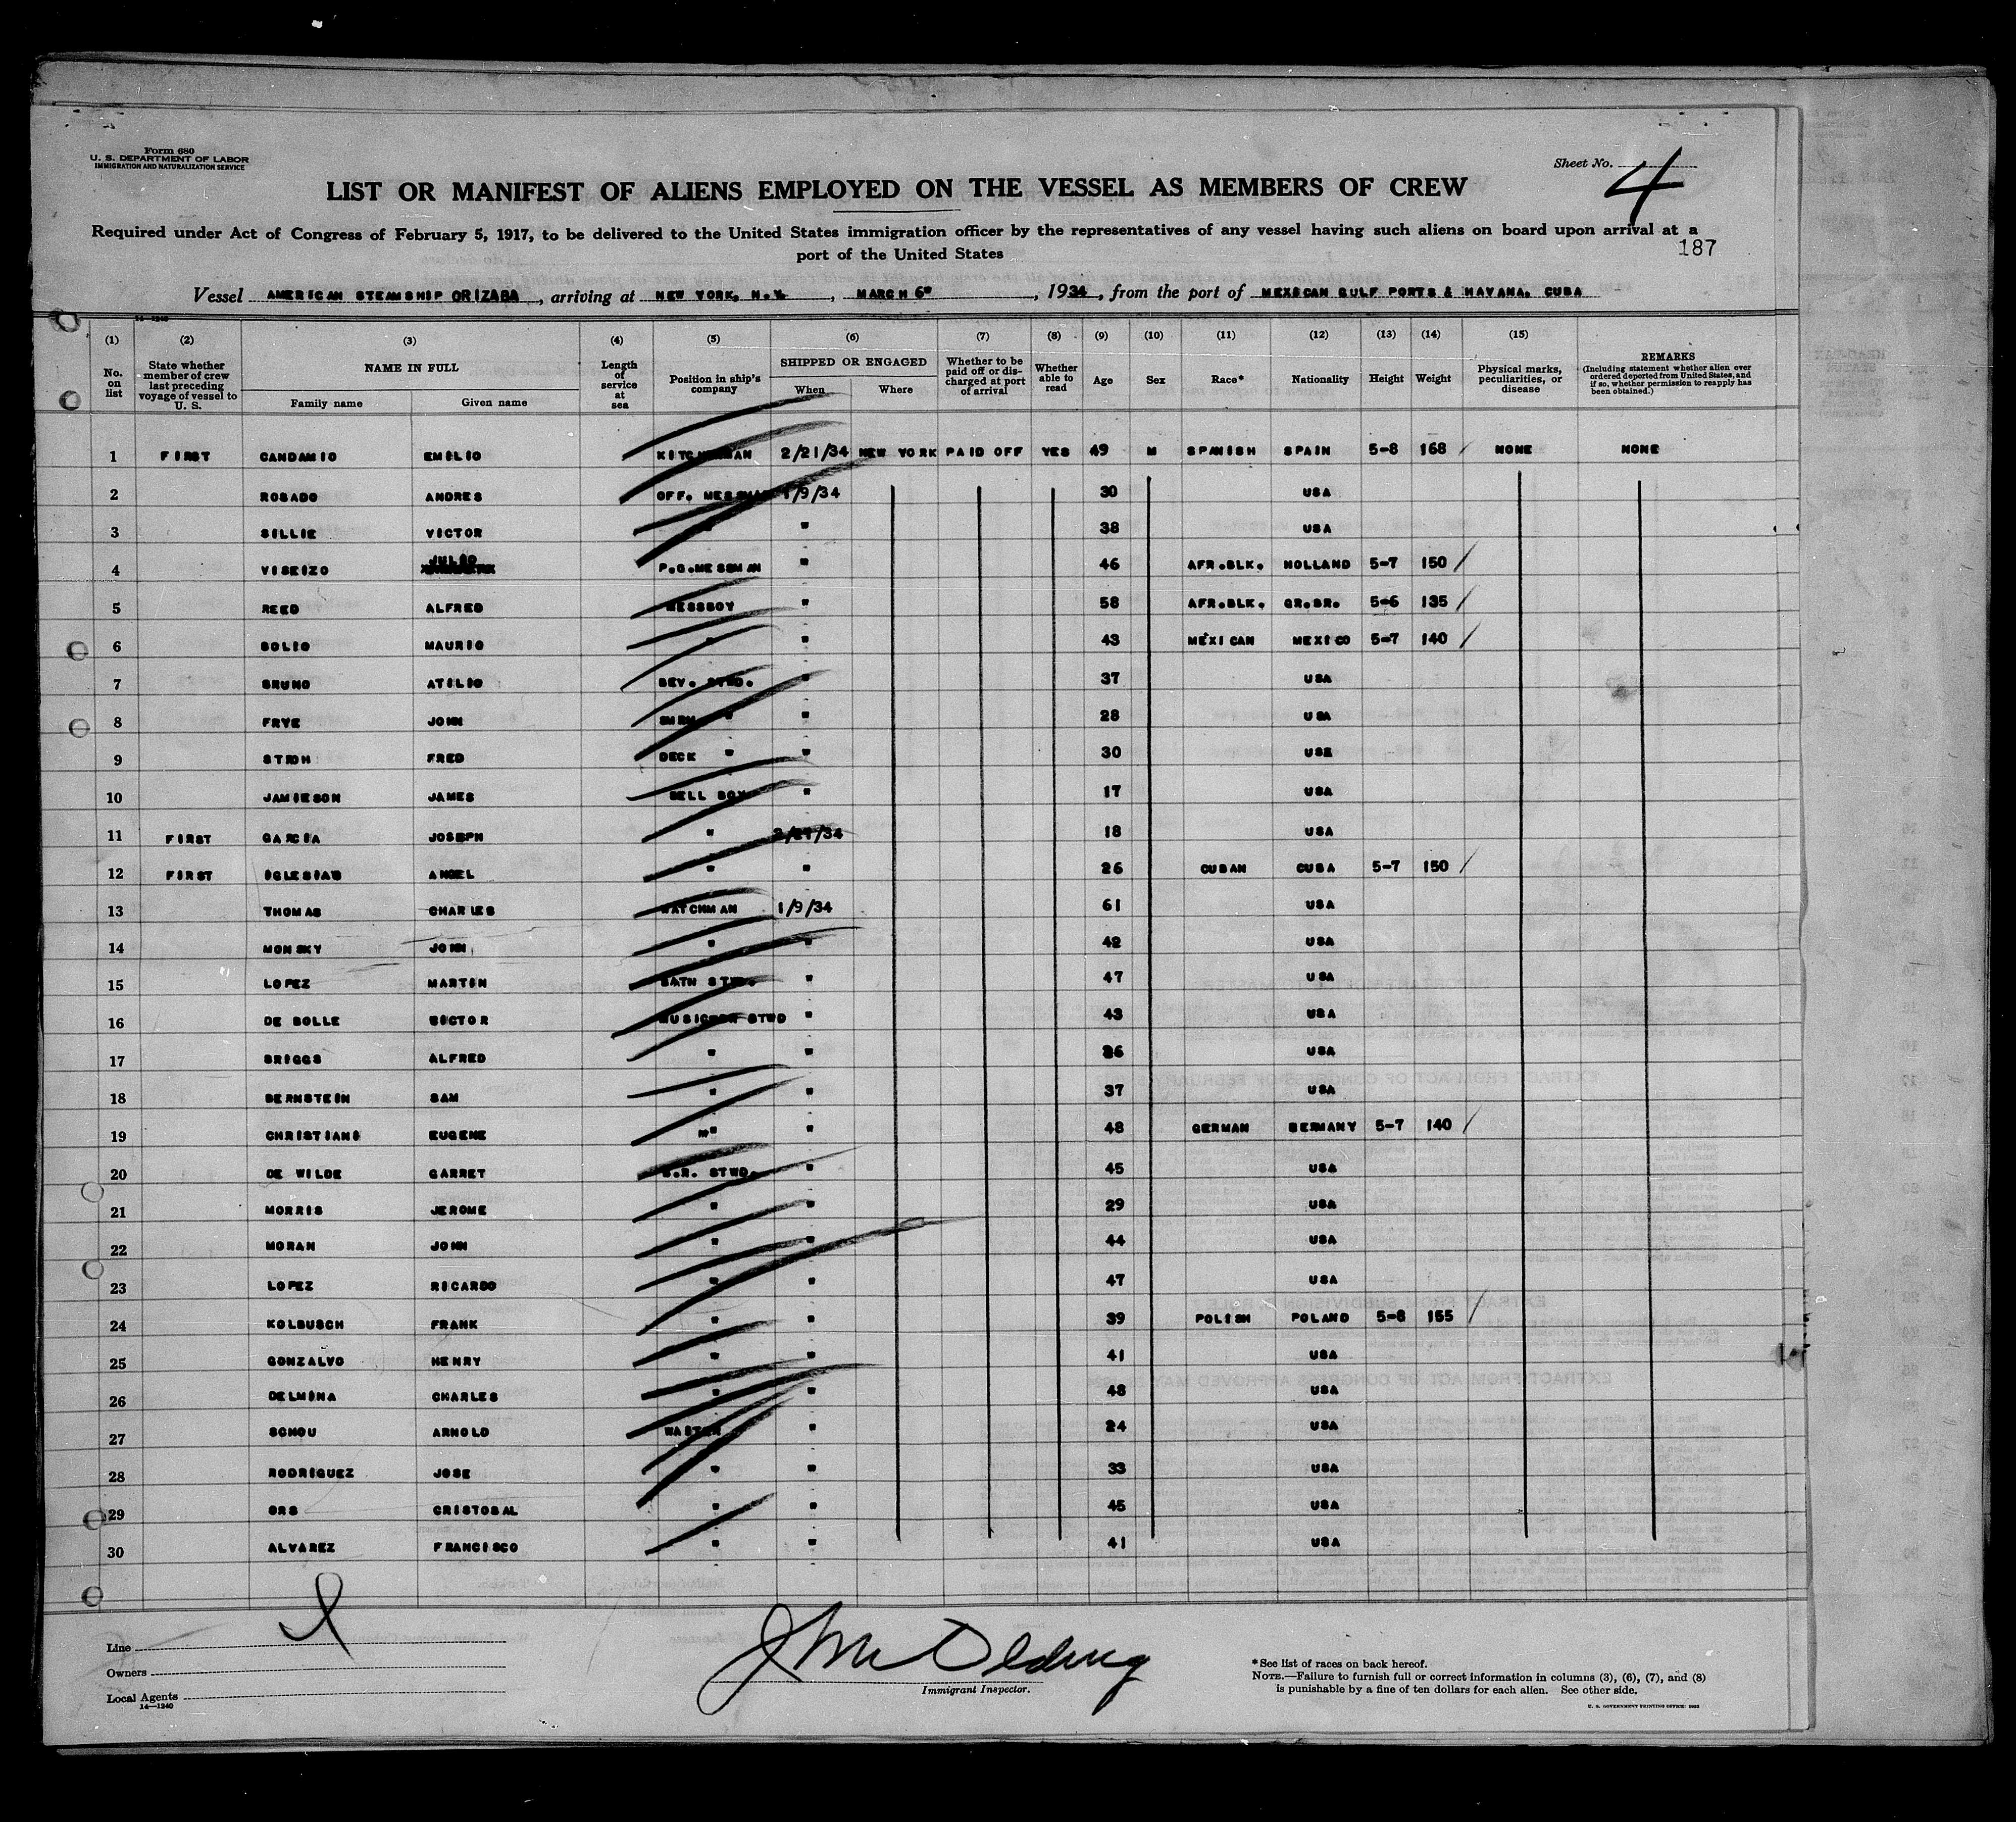 Form 680
U. S. DEPARTMENT OF LABOR
IMMIGRATION AND NATURALIZATION SERVICE
Sheet No. 4
LIST OR MANIFEST OF ALIENS EMPLOYED ON THE VESSEL AS MEMBERS OF CREW
Required under Act of Congress of February 5, 1917, to be delivered to the United States immigration officer by the representatives of any vessel having such aliens on board upon arrival at a
port of the United States
187
Vessel AMERICAN STEAMSHIP ORIZABA, arriving at NEW YORK, N.Y., MARCH 6", 1934, from the port of MEXICAN GULF PORTS & HAVANA, CUBA
14—1240
(1) (2) (3) (4) (5) (6) (7) (8) (9) (10) (11) (12) (13) (14) (15)
No. on list | State whether member of crew last preceding voyage of vessel to U. S. | NAME IN FULL | Family name | Given name | Length of service at sea | Position in ship's company | SHIPPED OR ENGAGED | When | Where | Whether to be paid off or discharged at port of arrival | Whether able to read | Age | Sex | Race* | Nationality | Height | Weight | Physical marks, peculiarities, or disease | REMARKS (Including statement whether alien ever ordered deported from United States, and if so, whether permission to reapply has been obtained.)
1 FIRST CANDAMIO EMILIO KITCHENMAN 2/21/34 NEW YORK PAID OFF YES 49 M SPANISH SPAIN 5-8 168 / NONE NONE
2 ROSADO ANDRES OFF. MESSMAN 1/9/34 30 USA
3 SILLIE VICTOR " " 38 USA
4 VISEIZO JULIO P.O.MESSMAN " 46 AFR.BLK. HOLLAND 5-7 150 /
5 REED ALFRED MESSBOY " 58 AFR.BLK. GR.BR. 5-6 135 /
6 SOLIO MAURIO " " 43 MEXICAN MEXICO 5-7 140 /
7 BRUNO ATILIO BEV. STWD. " 37 USA
8 FRYE JOHN " " 28 USA
9 STROH FRED DECK " " 30 USA
10 JAMIESON JAMES BELL BOY " 17 USA
11 FIRST GARCIA JOSEPH " 2/21/34 18 USA
12 FIRST IGLESIAS ANGEL " " 26 CUBAN CUBA 5-7 150 /
13 THOMAS CHARLES WATCHMAN 1/9/34 61 USA
14 MONSKY JOHN " " 42 USA
15 LOPEZ MARTIN BATH STWD. " 47 USA
16 DE BOLLE VICTOR MUSICIAN STWD " 43 USA
17 BRIGGS ALFRED " " 26 USA
18 BERNSTEIN SAM " " 37 USA
19 CHRISTIANS EUGENE " " 48 GERMAN GERMANY 5-7 140 /
20 DE WILDE GARRET STWD. " 45 USA
21 MORRIS JEROME " " 29 USA
22 MORAN JOHN " " 44 USA
23 LOPEZ RICARDO " " 47 USA
24 KOLBUSCH FRANK " " 39 POLISH POLAND 5-8 155 /
25 GONZALVO HENRY " " 41 USA
26 DELMINA CHARLES " " 48 USA
27 SCHOU ARNOLD WAITER " 24 USA
28 RODRIGUEZ JOSE " " 33 USA
29 ORS CRISTOBAL " " 45 USA
30 ALVAREZ FRANCISCO " " 41 USA
Line
Owners
Local Agents
14—1240
Immigrant Inspector.
*See list of races on back hereof.
NOTE.—Failure to furnish full or correct information in columns (3), (6), (7), and (8)
is punishable by a fine of ten dollars for each alien. See other side.
U. S. GOVERNMENT PRINTING OFFICE: